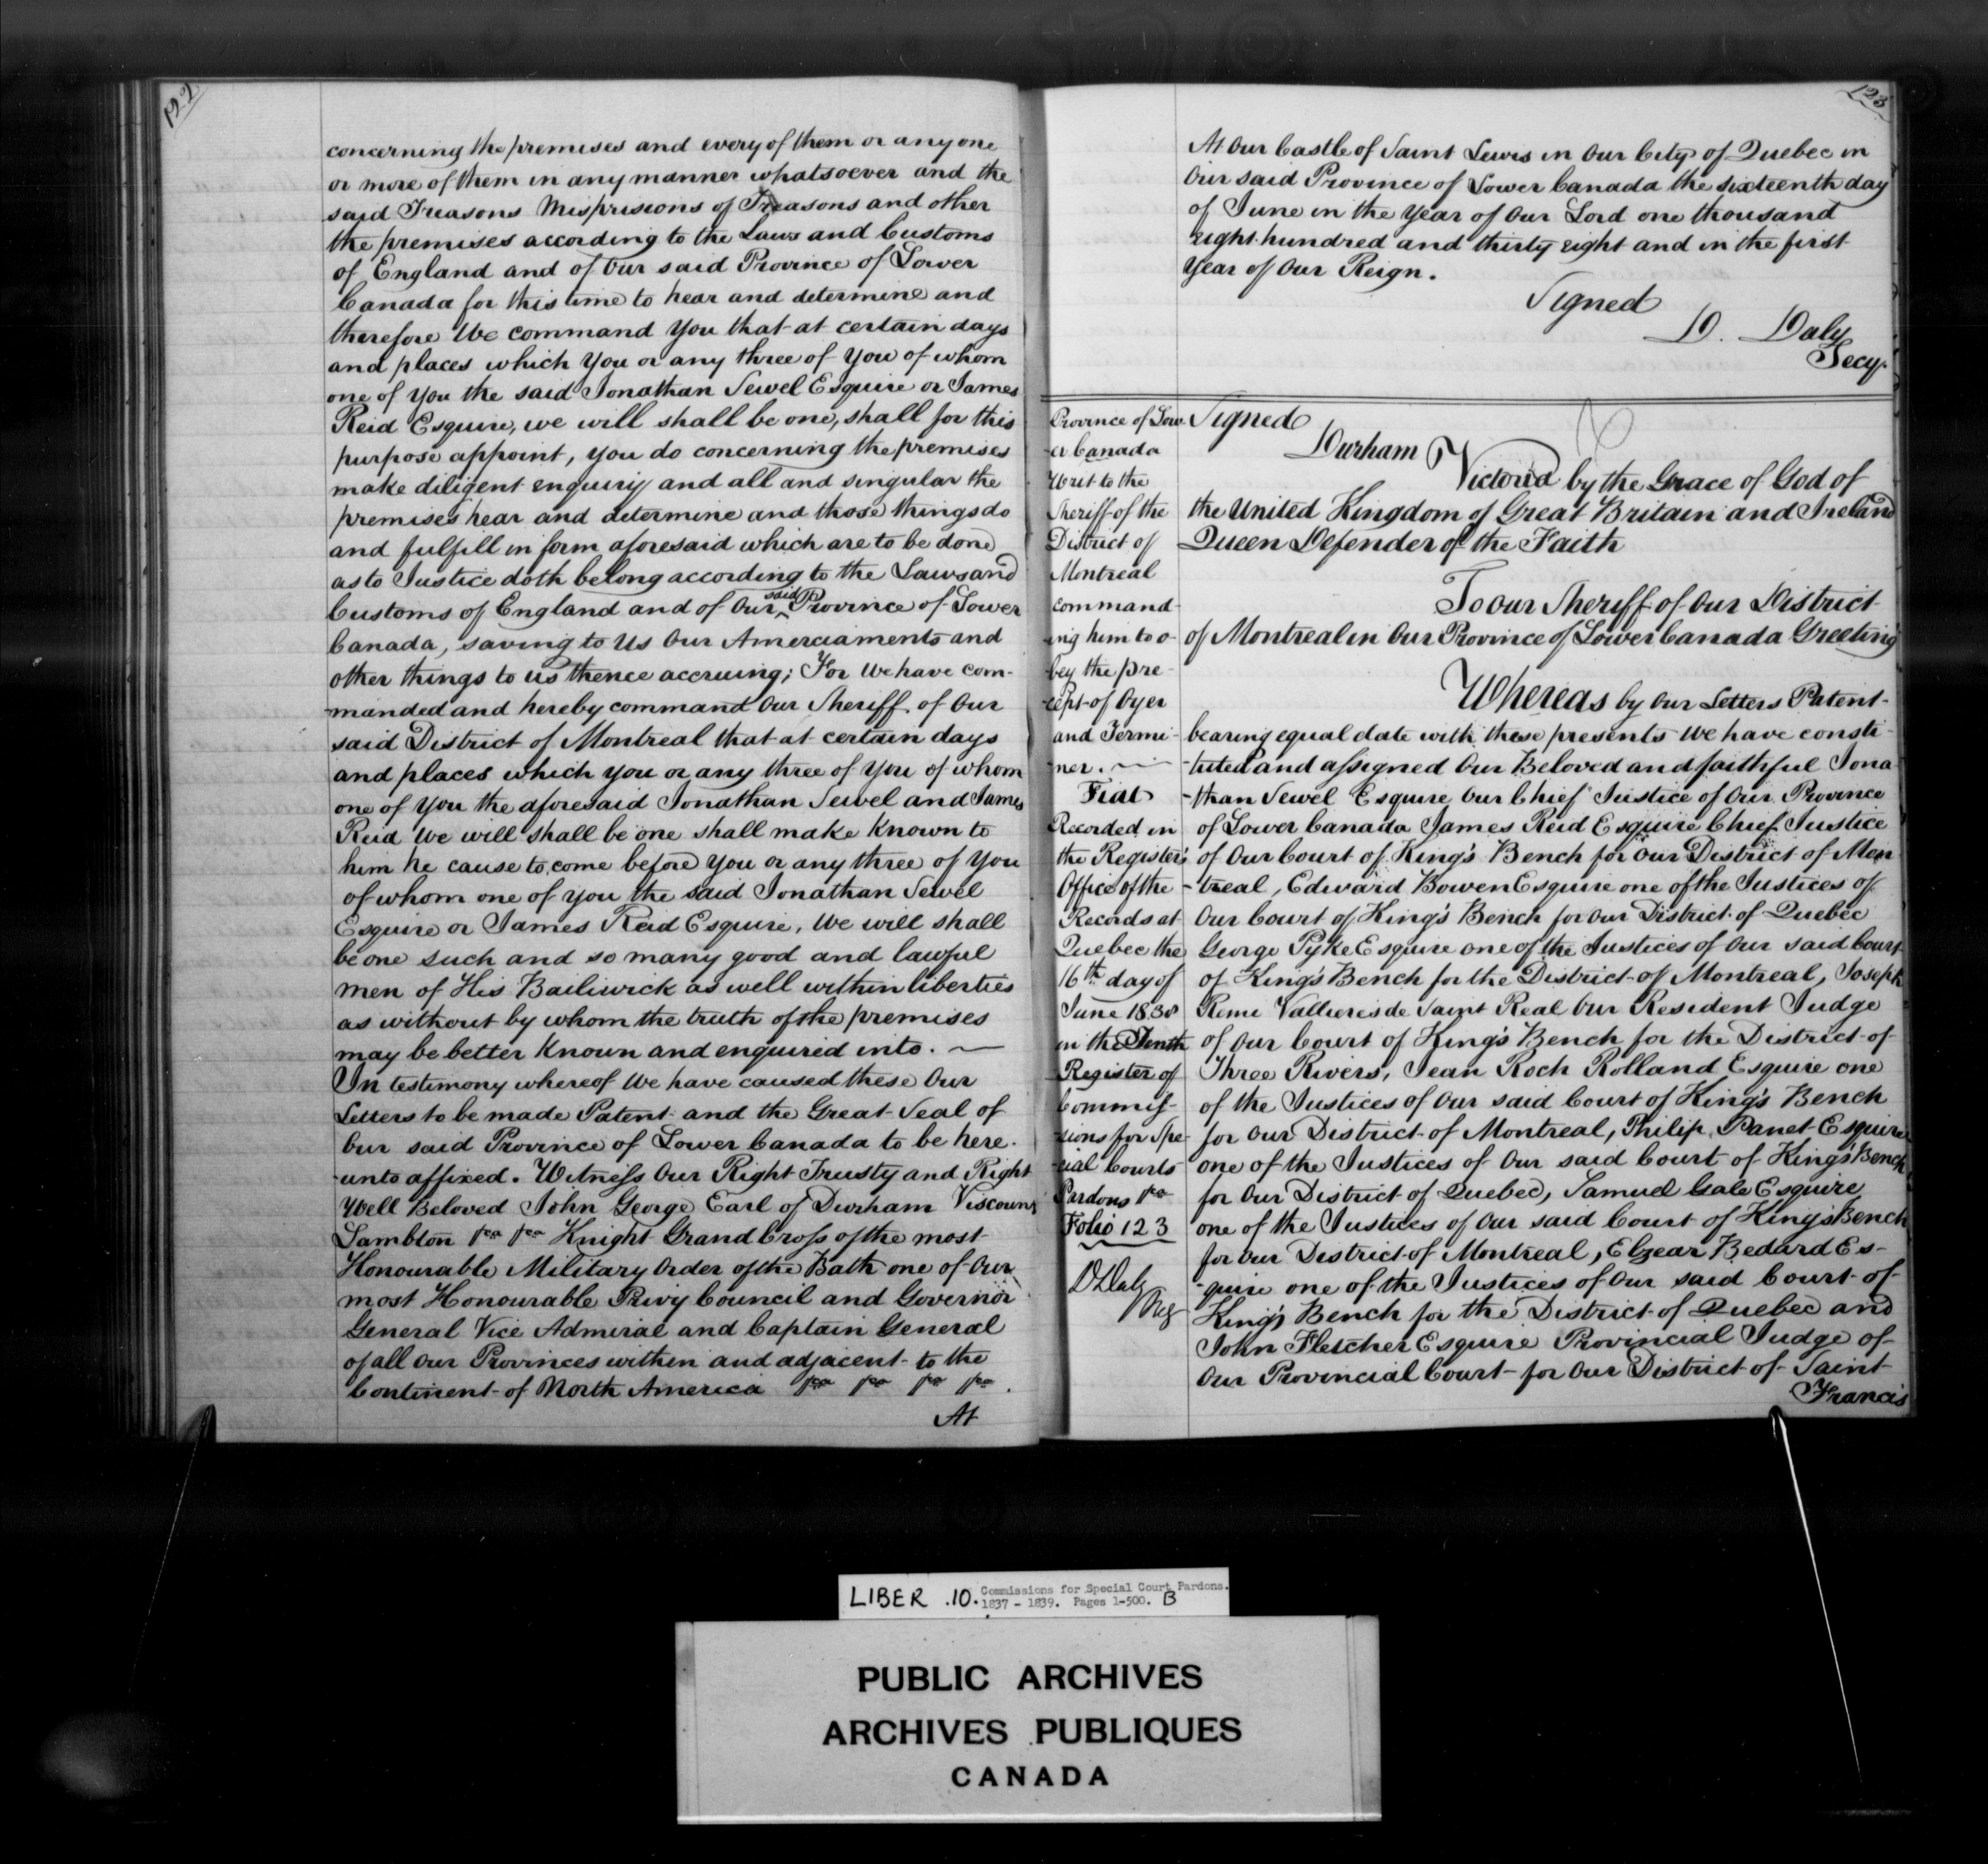 122
concerning the premises and every of them or any one
or more of them in any manner whatsoever and the
said Treasons Misprisions of Treasons and other
the premises according to the Laws and Customs
of England and of Our said Province of Lower
Canada for this time to hear and determine and
therefore We command You that at certain days
and places which You or any three of You of whom
one of You the said Jonathan Sewel Esquire or James
Reid Esquire, we will shall be one, shall for this
purpose appoint, you do concerning the premises
make diligent enquiry and all and singular the
premises hear and determine and those things do
and fulfill in form aforesaid which are to be done
as to Justice doth belong according to the Laws and
Customs of England and of Our said Province of Lower
Canada, saving to Us Our Amerciaments and
other things to us thence accruing; For We have com-
-manded and hereby command Our Sheriff of Our
said District of Montreal that at certain days
and places which you or any three of You of whom
one of You the aforesaid Jonathan Sewel and James
Reid We will shall be one shall make known to
him he cause to come before You or any three of You
of whom one of you the said Jonathan Sewel
Esquire or James Reid Esquire, We will shall
be one such and so many good and lawful
men of His Bailiwick as well within liberties
as without by whom the truth of the premises
may be better known and enquired into. —
In testimony whereof We have caused these Our
Letters to be made Patent and the Great Seal of
Our said Province of Lower Canada to be here-
-unto affixed. Witness Our Right Trusty and Right
Well Beloved John George Earl of Durham Viscount
Lambton &ca &ca Knight Grand Cross of the most
Honourable Military Order of the Bath one of Our
most Honourable Privy Council and Governor
General Vice Admiral and Captain General
of all Our Provinces within and adjacent to the
Continent of North America &ca &ca &ca &ca.
At
123
At Our Castle of Saint Lewis in Our City of Quebec in
Our said Province of Lower Canada the sixteenth day
of June in the Year of Our Lord one thousand
eight hundred and thirty eight and in the first
Year of Our Reign.
Signed
D. Daly
Secy.
Province of Low-
-er Canada
Writ to the
Sheriff of the
District of
Montreal
command-
-ing him to o-
-bey the pre-
-cept of Oyer
and Termi-
-ner. —
Fiat
Recorded in
the Register's
Office of the
Records at
Quebec the
16th day of
June 1838
in the Tenth
Register of
Commis-
-sions for Spe-
-cial Courts
Pardons &ca
Folio 123
D Daly
Reg
Signed
Durham
Victoria by the Grace of God of
the United Kingdom of Great Britain and Ireland
Queen Defender of the Faith
To Our Sheriff of Our District
of Montreal in Our Province of Lower Canada Greeting
Whereas by Our Letters Patent
bearing equal date with these presents We have consti-
-tuted and assigned Our Beloved and faithful Jona
-than Sewel Esquire Our Chief Justice of Our Province
of Lower Canada James Reid Esquire Chief Justice
of Our Court of King's Bench for Our District of Mon
-treal, Edward Bowen Esquire one of the Justices of
Our Court of King's Bench for Our District of Quebec
George Pyke Esquire one of the Justices of Our said Court
of King's Bench for the District of Montreal, Joseph
Remi Vallieres de Saint Real Our Resident Judge
of Our Court of King's Bench for the District of
Three Rivers, Jean Roch Rolland Esquire one
of the Justices of Our said Court of King's Bench
for Our District of Montreal, Philip Panet Esquire
one of the Justices of Our said Court of King's Bench
for Our District of Quebec, Samuel Gale Esquire
one of the Justices of Our said Court of King's Bench
for Our District of Montreal, Elzear Bedard Es-
-quire one of the Justices of Our said Court of
King's Bench for the District of Quebec and
John Fletcher Esquire Provincial Judge of
Our Provincial Court for Our District of Saint
Francis
LIBER .10. Commissions for Special Court Pardons.
1837 - 1839. Pages 1-500. B
PUBLIC ARCHIVES
ARCHIVES PUBLIQUES
CANADA